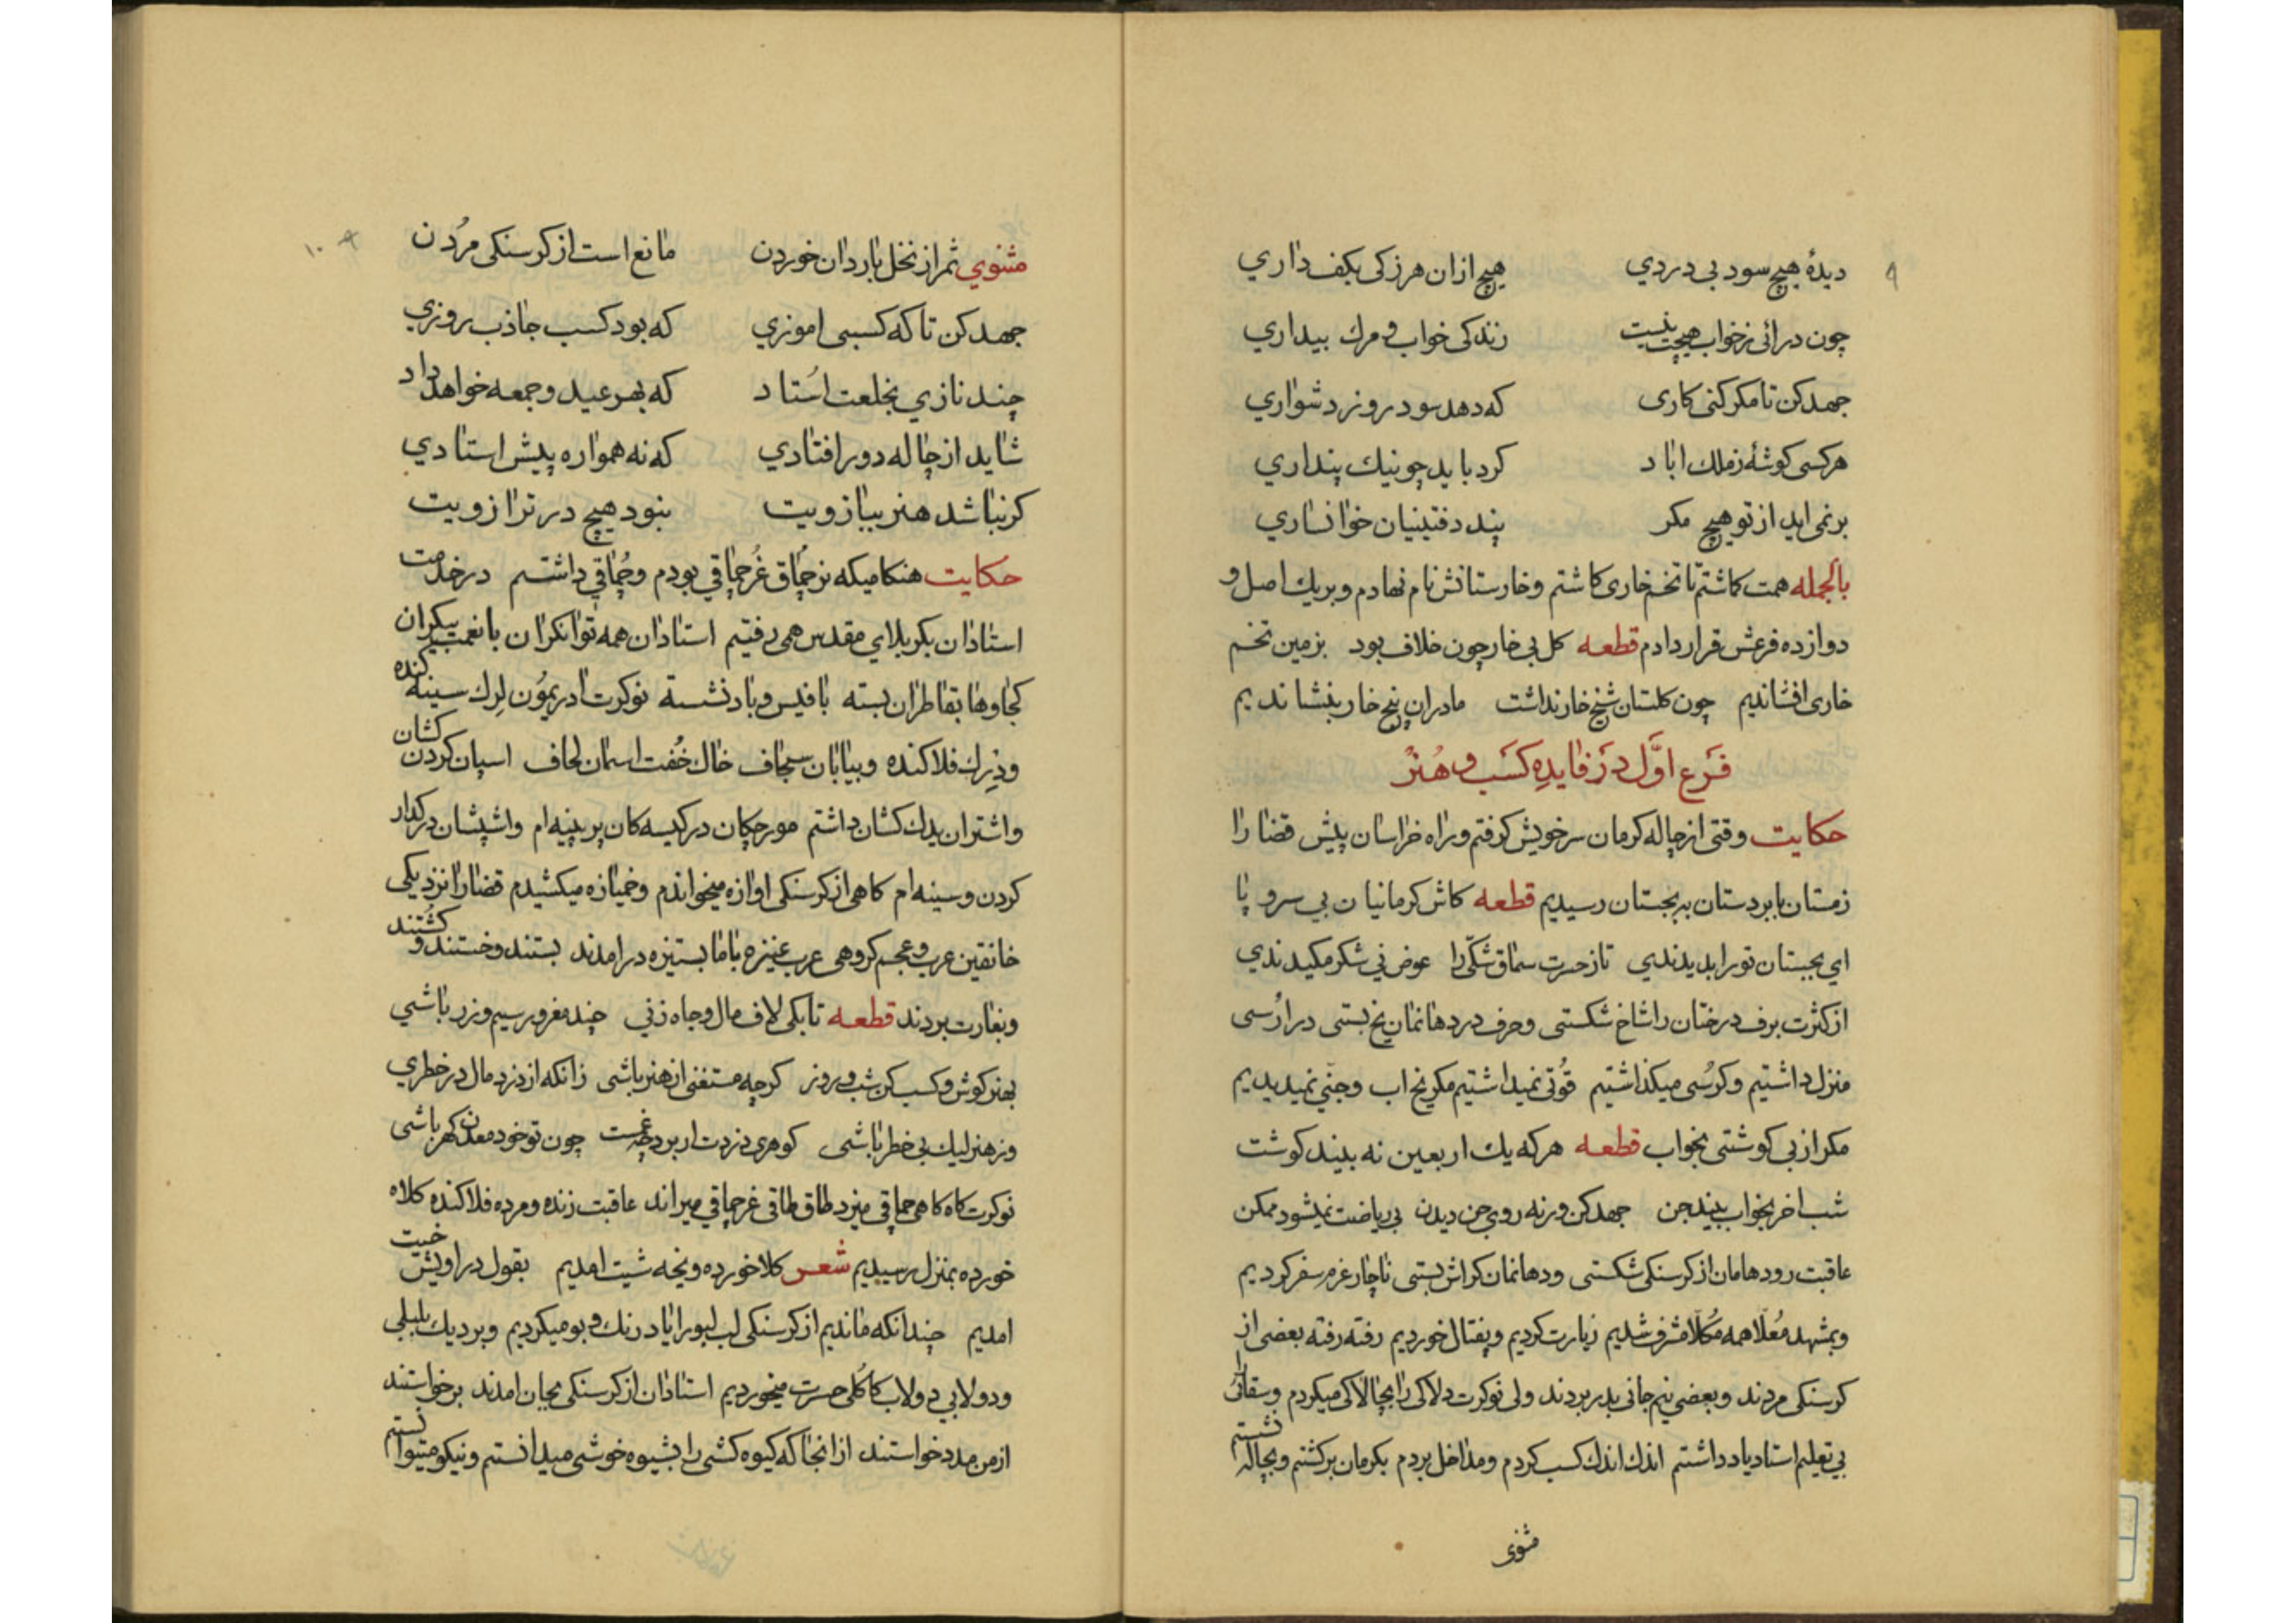 ۹
دیدهٔ هیچ سود بی دردي هیچ ازان هرزکی بکف داري
چون درائی زخواب هیچت نیست زندکی خواب و مرك بیداري
جهد کن تا مکر کنی کاری که دهد سود روز دشواري
هرکسی کوشهٔ زملك اباد کرد باید چو نیك پنداري
برنمی اید از تو هیچ مکر پند دفتینیان خوانساري
بالجمله همت کماشتم تا تخم خاری کاشتم و خارستانش نام نهادم و بریك اصل و
دوازده فرعش قرار دادم قطعه کل بی خار چون خلاف بود بزمین تخم
خاری افشاندیم چون کلستان شیخ خار نداشت ما دران پنج خار بنشاندیم
فَرع اوَّل دَر فایدهِ کَسَب و هُنَرْ
حکایت وقتی از چاله کرمان سر خویش کرفتم و راه خراسان پیش قضا را
زمستان با بردستان به بجستان رسیدیم قطعه کاش کرمانیان بي سر و پا
اي بجستان تو را بدیدندي تا زحسرت سماق شکّی را عوض ني شکر مکیدندي
از کثرت برف درختان را شاخ شکستی و حرف در دهانمان یخ بستی در اُرُسی
منزل داشتیم و کرُسی میکذاشتیم قُوتی نمیداشتیم مکر یخ اب و جنّي نمیدیدیم
مکر از بی کوشتی بخواب قطعه هرکه یك اربعین نه بیند کوشت
شب اخر بخواب بیند جن جهد کن ورنه روي جن دیدن بي ریاضت نمیشود ممکن
عاقبت رودهامان از کرسنکی شکستی و دهانمان کراش بستی ناچار عزم سفر کردیم
و بمشهد مُعلّا همه مُکلّا مشرف شدیم زیارت کردیم و یفتال خوردیم رفته رفته بعضی از
کرسنکی مردند و بعضی نیم جانی بدر بردند ولی نوکرت دلاکی را بچالاکی میکردم و سقائی را
بي تعلیم استاد یاد داشتم اندك اندك کسب کردم و مداخل بردم بکرمان برکشتم و بچاله نشستم
مثنوی
۱۰
مثنوي ثمر از نخل بارد ان خوردن مانع است از کرسنکی مرُدن
جهد کن تا که کسبی اموزي که بود کسب جاذب روزي
چند نازي بخلعت اُستاد که بهر عید و جمعه خواهد داد
شاید از چاله دور افتادي که نه همواره پیش استادي
کر نباشد هنر ببازویت نبود هیچ در ترازویت
حکایت هنکامیکه نر چُماق غُرچماقي بودم و چُماقي داشتم در خدمت
استادان بکربلاي مقدس همی رفتیم استادان همه توانکران با نعمت بیکران
کجاوها بقاطران بسته با فیس و باد نشسته نوکرت ادریموُن لِرك سینه کنده
و ذِیرك فلاکنده و بیابان سجاف خاك خُفت اسمان لحاف اسپان کردن کشان
و اشتران یدك کشان داشتم مورچکان در کیسه کان پر پینه ام و اشپشان در کدار
کردن و سینه ام کاهی از کرسنکی اوازه میخواندم و خمیازه میکشیدم قضا را نزدیکی
خانقین عرب و عجم کروهی عرب عنیزه باما بستیزه درامدند بستند و خستند و کُشتند
و بغارت بردند قطعه تا بکی لاف مال و جاه زني چند مغرور سیم و زر باشي
بهنر کوش و کسب کن شب و روز کرچه مستغنی از هنر باشی زانکه از دزد مال در خطري
وز هنر لیك بي خطر باشی کوهری دزدت ار برد چه غمست چون تو خود معدن کهر باشی
نوکرت کاه کاهی چماقي میزد طاق طاقی غرچماقي میراند عاقبت زنده و مرده فلاکنده کلاه
خورده بمنزل رسیدیم شعر کلا خورده و پخه شیت امدیم بقول دراویش خیت
امدیم چندانکه ماندیم از کرسنکی لب لبو را یاد رنك و بو میکردیم و بر دیك بلبلي
و دولابي دولاب کاکُلی حسرت میخوردیم استادان از کرسنکی بجان امدند برخواستند
از من مدد خواستند از انجا که کیوه کشی را بشیوه خوشی میدانستم و نیکو میتوانستم